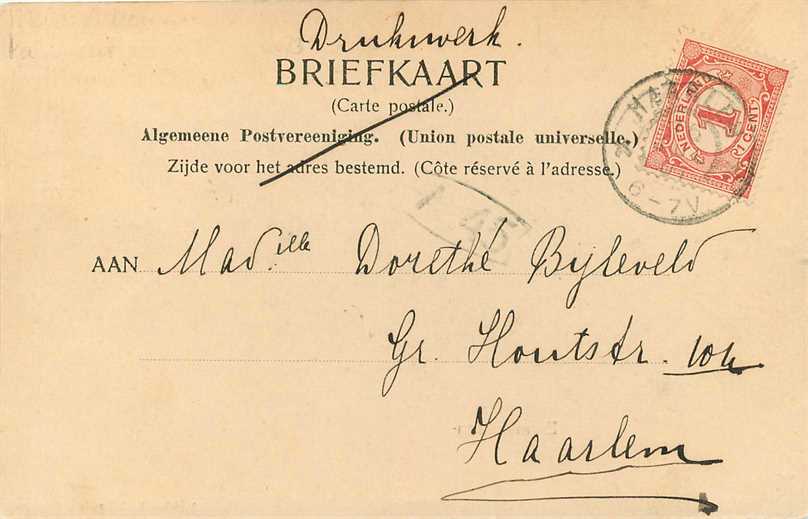 Drukwerk.
BRIEFKAART
(Carte postale.)
Algemeene Postvereeniging. (Union postale universelle.)
Zijde voor het adres bestemd. (Côte réservé à l'adresse.)
NEDERLAND
1
1 CENT
6-7V
45
AAN Mad.elle Dorethé Byleveld
Gr. Houtstr.
Haarlem